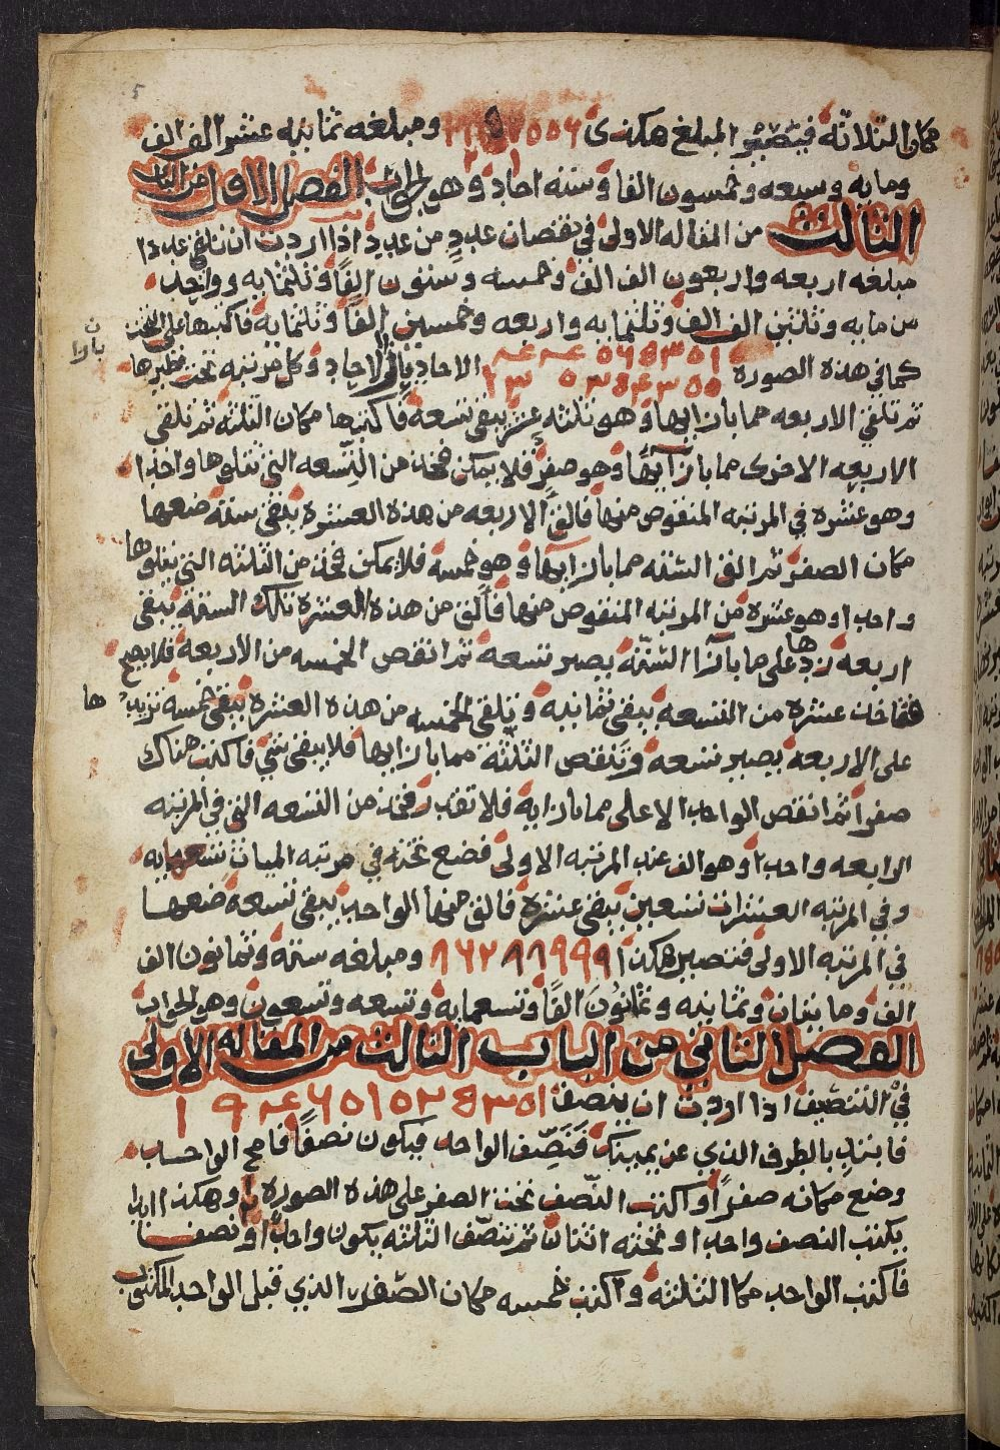 مكان الثلاثة فيتصير المبلغ هكذى ومبلغه ثمانيه عشر الف الف
ومايه وسبعه وخمسون الفا وسته احاد وهو الجواب الفصل الاول من الباب
الثالث من المقاله الاولى في نقصان عددٍ من عددٍ اذا اردت ان تلقي عددا
مبلغه اربعه واربعون الف الف وخمسه وستون الفًا وثلثمايه وواحد
من مايه وثلثين الف الف وثلثمايه واربعه وخمسين الفًا وثلثمايه فاكتبها على التخت
كما في هذه الصوره الاحاد بازا الاحاد وكل مرتبه تحت نظيرها
ثم تلقي الاربعه مما بازايها وهو ثلثه عشر يبقى تسعة فاكتبها مكان الثلثه ثم تلقى
الاربعه الاخرى مما بازآيها وهو صفر فلا يمكن فخذ من التسعه التي تتلوها واحدا
وهو عشره في المرتبه المنقوص منها فالق الاربعه من هذه العشره يبقى سته ضعها
مكان الصفر ثم الق السته مما بازايها وهو خمسة فلا يمكن فخذ من الثلثه التي تتلوها
واحدا وهو عشره من المرتبه المنقوص منها فألق من هذه العشره تلك الستة يبقى
اربعه زدها على ما بآزا الستّه يصير تسعه ثم انقص الخمسه من الاربعه فلا يصح
فتاخذ عشره من التسعه يبقى ثمانيه وتلقى الخمسه من هذه العشره يبقى خمسة تزيدها
على الاربعه يصير تسعه وتنقص الثلثة مما بازايها فلا يبقى شي فاكتب هناك
صفرا ثم انقص الواحد الاعلى مما بازايه فلا تقدر فخذ من التسعه التي في المرتبه
الرابعه واحدا وهو الف عند المرتبه الاولى فضع تحته في مرتبه الميات تسعمايه
وفي المرتبه العشرات تسعين يبقى عشره فالق منها الواحد يبقى تسعة ضعها
في المرتبه الاولى فتصير هكذا ٨٦٢٨٨٩٩٩ ومبلغه ستة وثمانون الف
الف ومايتان وثمانيه وثمانُونَ الفًا وتسعمايه وتسعه وتسعون وهو الجواب
الفصل الثاني من الباب الثالث من المقاله الاولى
في التنصيف اذا اردت ان ينصف
فابتدِ بالطرف الذي عن يمينك فتنَصِّف الواحد فيكون نصفًا فامح الواحد
وضع مكانه صفرًا واكتب النّصف تحت الصفر على هذه الصوره وهكذا ابدا
يكتب النصف واحدا وتحته اثنان ثم تنصّف الثلثه يكون واحدًا ونصف
فاكتب الواحد مكان الثلثه واكتب خمسه مكان الصّفر الذي قبل الواحد المكتوب